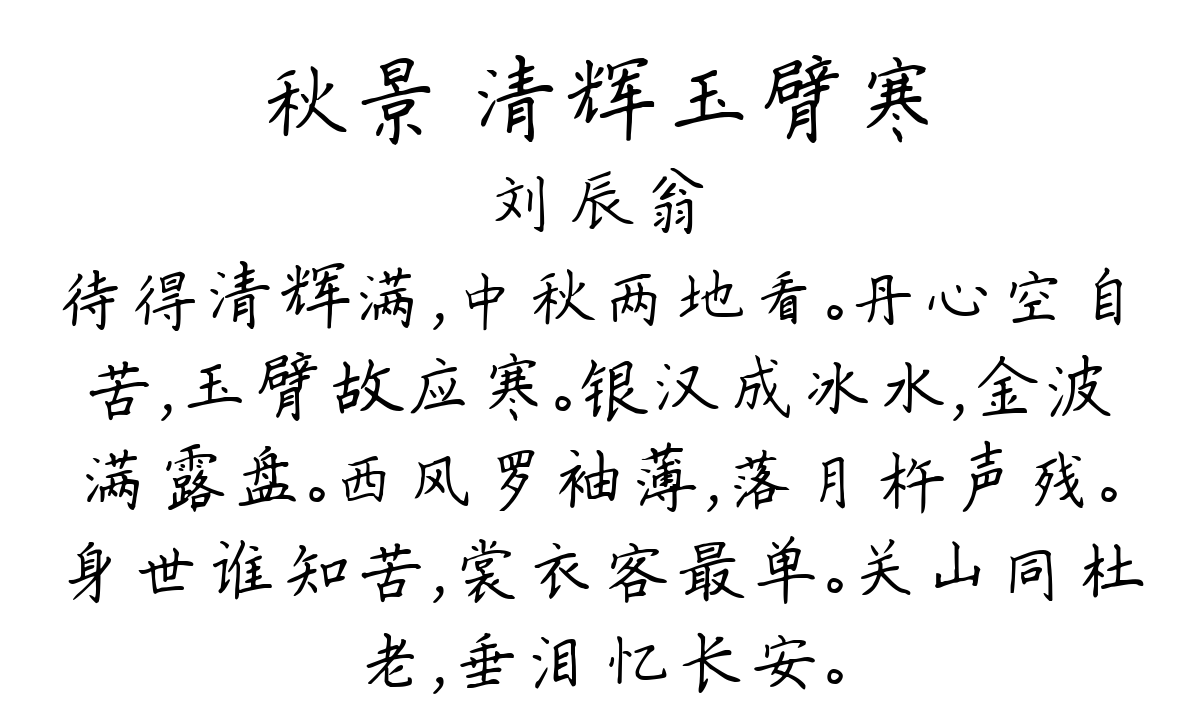 秋景 清辉玉臂寒
刘辰翁
待得清辉满,中秋两地看。丹心空自
苦,玉臂故应寒。银汉成冰水,金波
满露盘。西风罗袖薄,落月杵声残。
身世谁知苦,裳衣客最单。关山同杜
老,垂泪忆长安。